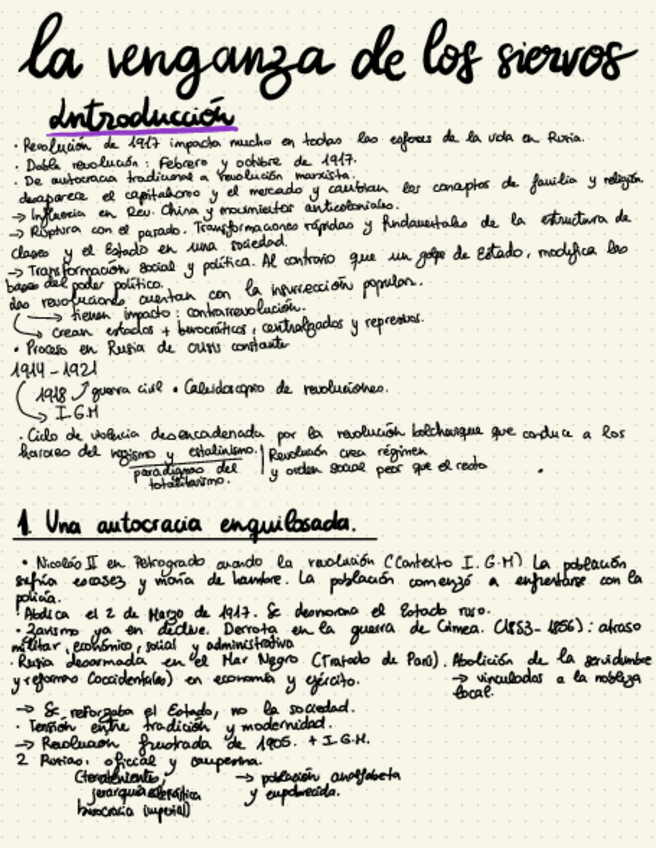 la venganza de los siervos
Introducción
· Revolución de 1917 impacta mucho en todas las esferas de la vida en Rusia.
· Doble revolución: Febrero y octubre de 1917.
· De autocracia tradicional a revolución marxista.
desaparece el capitalismo y el mercado y cambian los conceptos de familia y religión.
→ Influencia en Rev. China y movimientos anticoloniales.
→ Ruptura con el pasado. Transformaciones rápidas y fundamentales de la estructura de
clases y el Estado en una sociedad.
→ Transformación social y política. Al contrario que un golpe de Estado, modifica las
bases del poder político.
Las revoluciones cuentan con la insurrección popular.
→ tienen impacto: contrarrevolución.
→ crean estados + burocráticos, centralizados y represivos.
· Proceso en Rusia de crisis constante
1914-1921
1918 guerra civil · Caleidoscopio de revoluciones.
→ I.G.M
· Ciclo de violencia desencadenada por la revolución bolchevique que conduce a los
horrores del nazismo y estalinismo. Revolución crea régimen
paradigmas del y orden social peor que el
totalitarismo.
1. Una autocracia enquilosada.
· Nicolás II en Petrogrado cuando la revolución (Contexto I.G.M) La población
sufría escasez y moría de hambre. La población comenzó a enfrentarse con la
policía.
· Abdica el 2 de Marzo de 1917. Se desmorona el Estado ruso.
· Zarismo ya en declive. Derrota en la guerra de Crimea. (1853-1856): atraso
militar, económico, social y administrativo
· Rusia desarmada en el Mar Negro (Tratado de París). Abolición de la servidumbre
y reformas (occidentales) en economía y ejército. → vinculados a la nobleza
local.
→ Se reforzaba el Estado, no la sociedad.
· Tensión entre tradición y modernidad.
→ Revolución frustrada de 1905. + I.G.M.
2 Rusias: oficial y campesina.
(terratenientes, → población analfabeta
jerarquía y empobrecida.
burocracia imperial)